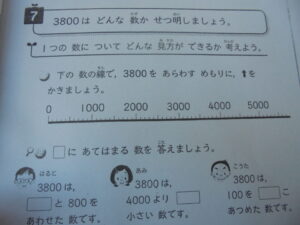 7 3800は どんな 数か せつ明しましょう。
1つの 数に ついて どんな 見方が できるか 考えよう。
下の 数の線で、3800を あらわす めもりに、↑を
かきましょう。
0 1000 2000 3000 4000 5000
□に あてはまる 数を 答えましょう。
はると
3800は、
□と 800を
あわせた 数です。
あみ
3800は、
4000より □
小さい 数です。
こうた
3800は、
100を □こ
あつめた 数です。